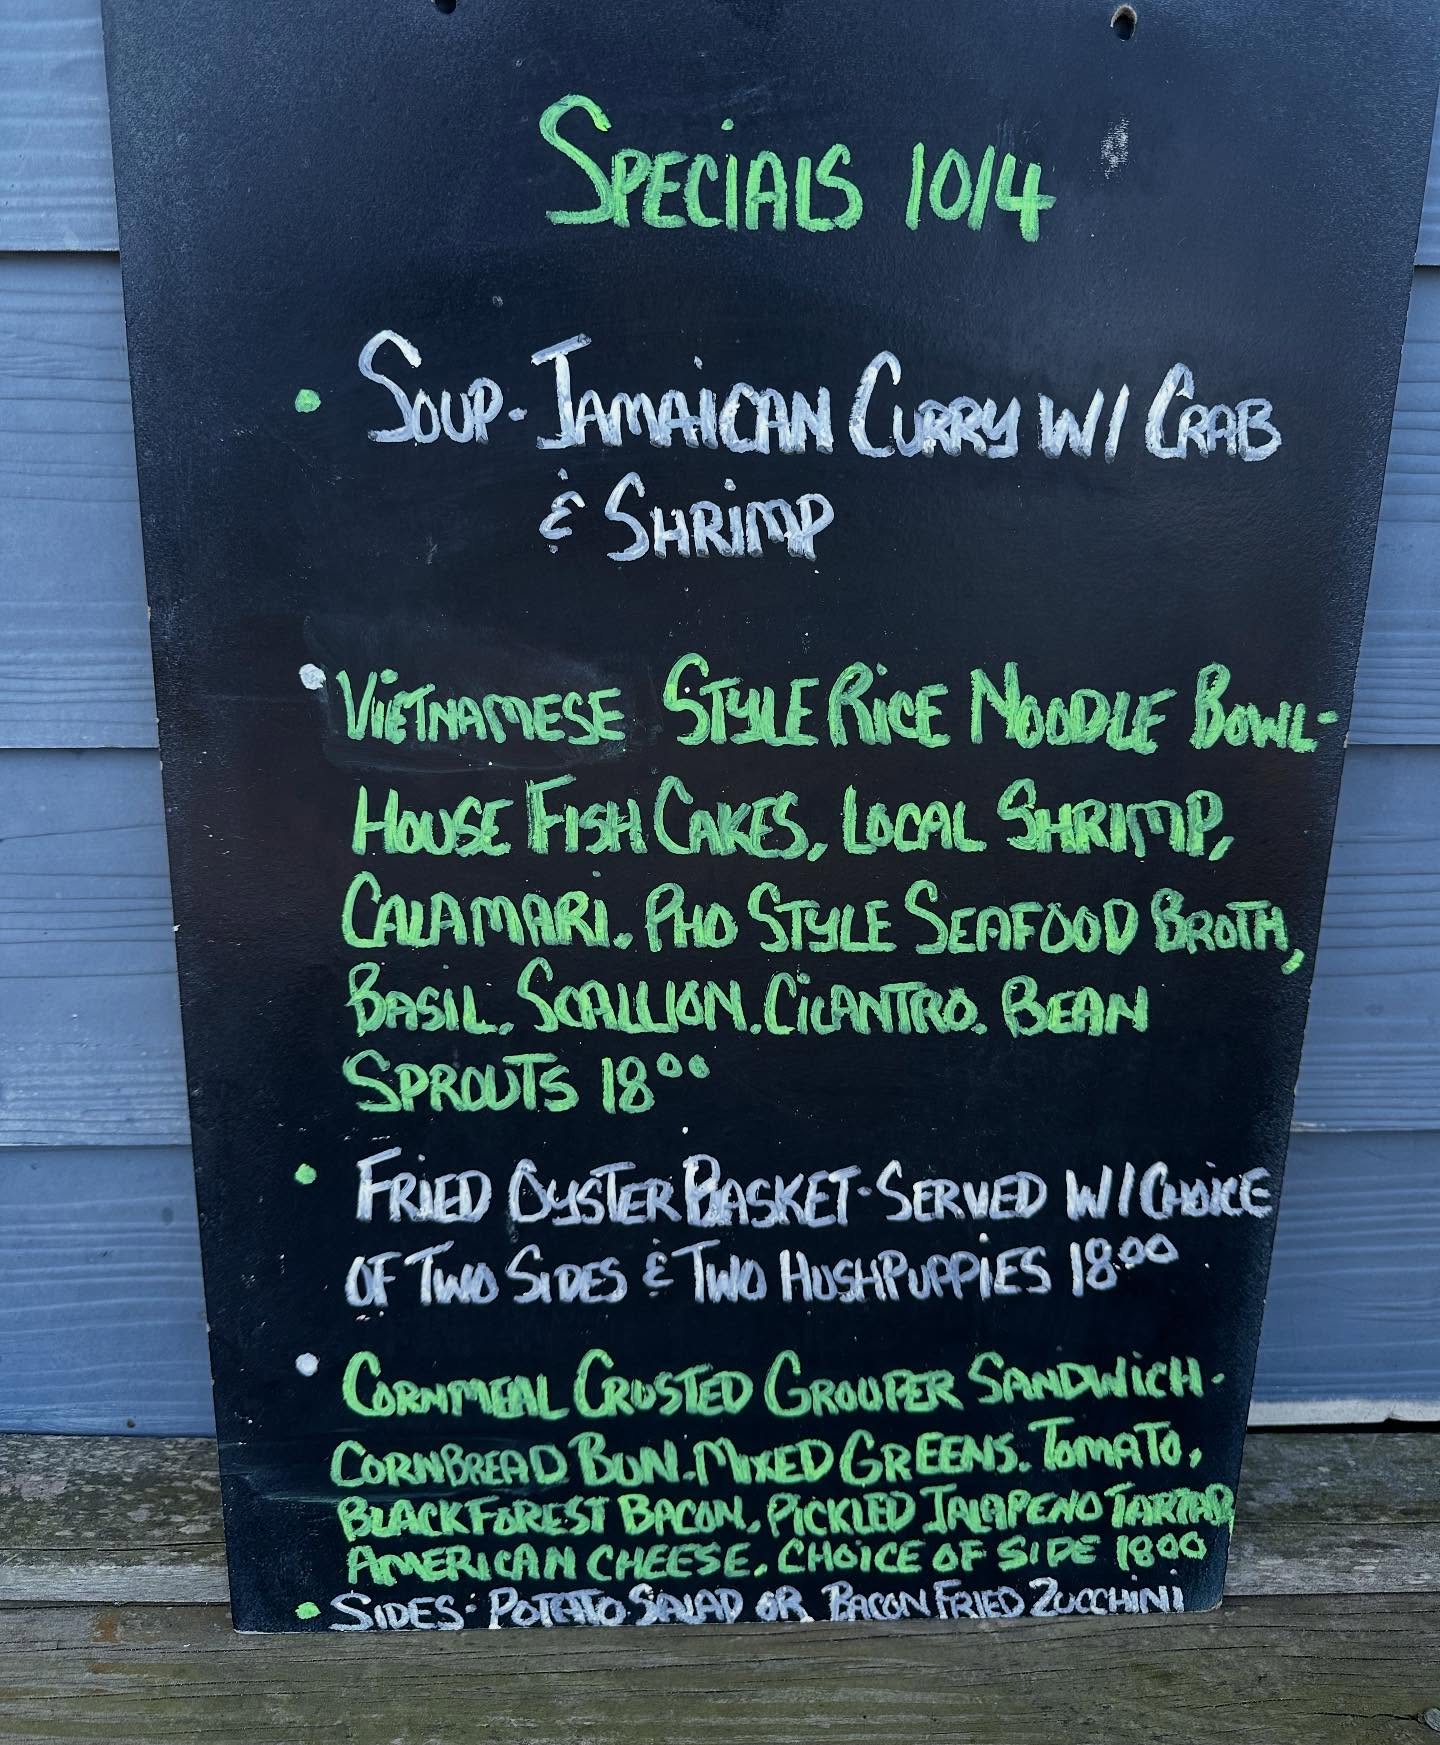 SPECIALS 10/4
SOUP- JAMAICAN CURRY W/ CRAB
& SHRIMP
VIETNAMESE STYLE RICE NOODLE BOWL-
HOUSE FISH CAKES, LOCAL SHRIMP,
CALAMARI, PHO STYLE SEAFOOD BROTH,
BASIL, SCALLION, CILANTRO, BEAN
SPROUTS 18.00
FRIED OYSTER BASKET-SERVED W/ CHOICE
OF TWO SIDES & TWO HUSHPUPPIES 18.00
CORNMEAL CRUSTED GROUPER SANDWICH-
CORNBREAD BUN, MIXED GREENS, TOMATO,
BLACKFOREST BACON, PICKLED JALAPENO TARTAR,
AMERICAN CHEESE, CHOICE OF SIDE 1800
SIDES: POTATO SALAD OR BACON FRIED ZUCCHINI